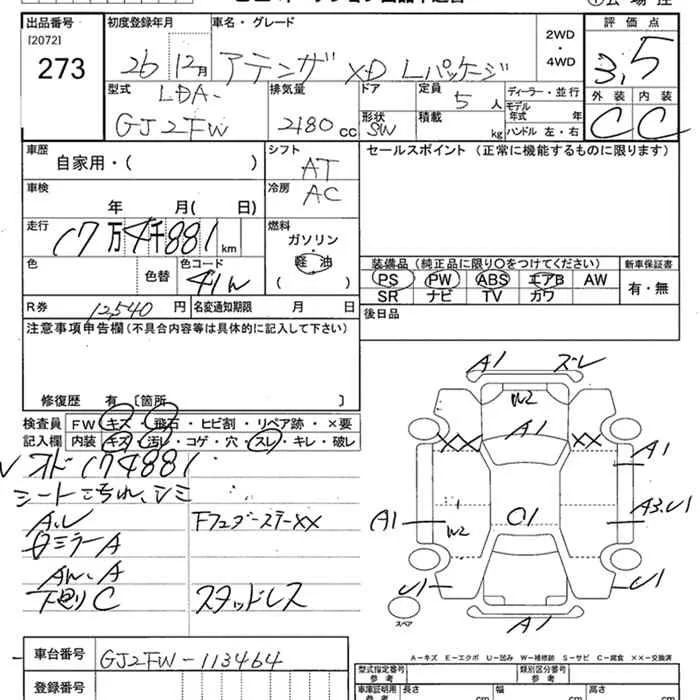 出品番号 初度登録年月 車名・グレード 評価点
[2072]
273 26 12月 アテンザ XD Lパッケージ 2WD・4WD 3.5
型式 排気量 ドア 定員 ディーラー・並行 外装 内装
LDA- 5人 モデル年式 年 C C
GJ2FW 2180cc 形状 SW 積載 kg ハンドル 左・右
車歴 シフト セールスポイント (正常に機能するものに限ります)
自家用・( ) AT
車検 冷房
年 月( 日) AC
走行 燃料
17万4千881km ガソリン・軽油
色 色替 色コード 41W ( )
装備品 (純正品に限り○をつけてください) 新車保証書
PS PW ABS エアB AW 有・無
SR ナビ TV カワ
R券 12,540円 名変通知期限 月 日 後日品
注意事項申告欄(不具合内容等は具体的に記入して下さい)
修復歴 有 [箇所
検査員 FW キズ・飛石・ヒビ割・リペア跡・×要
記入欄 内装 キズ・汚レ・コゲ・穴・スレ・キレ・破レ
オド174881
シートこすれ、シミ
A.U Fフェンダーステー××
ミラーA
AW.A
下廻りC スタッドレス
A1 ズレ
W2
A1
×× ××
A1
A1 W2 C1 A3.U1
U1 U1
A1
スペア
A-キズ E-エクボ U-凹み W-補修跡 S-サビ C-腐食 ××-交換済
車台番号 GJ2FW-113464 型式指定番号 参考 類別区分番号 参考
登録番号 車庫証明用 参考 長さ cm 幅 cm 高さ cm